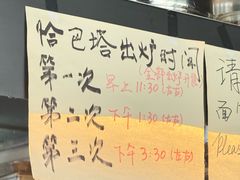 恰巴塔出炉时间
第一次 早上11:30(左右)
第二次 下午1:30(左右)
第三次 下午3:30(左右)
请
面
Please